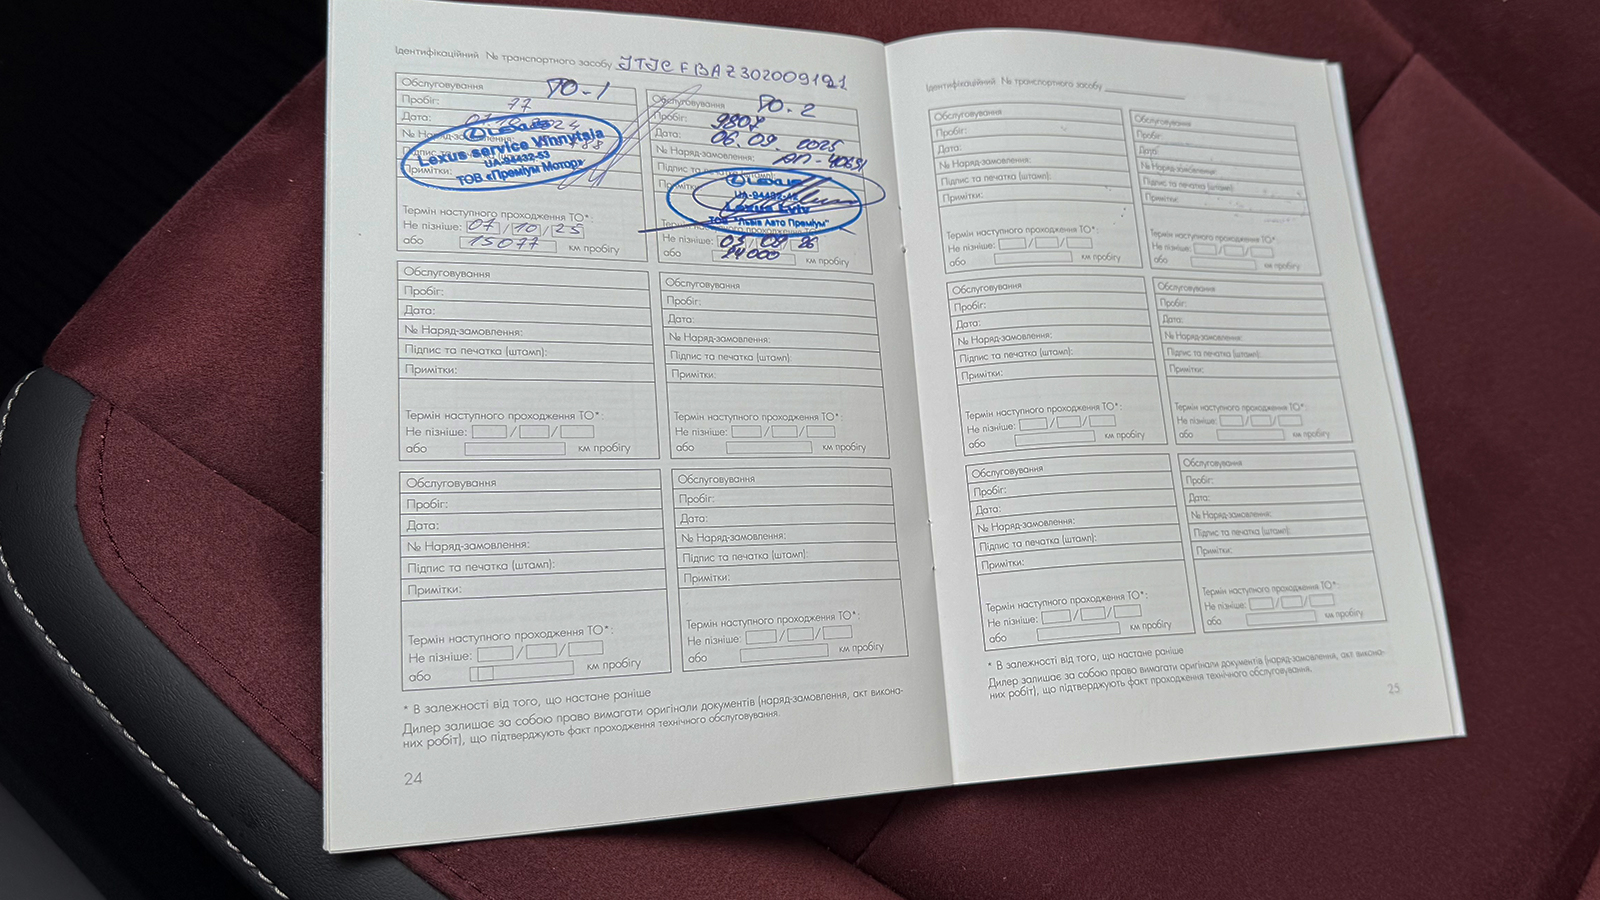 Ідентифікаційний № транспортного засобу JTJCFBAZ302009121
Обслуговування ТО-1
Пробіг: 77
Дата:
№ Наряд-замовлення:
Підпис та
Примітки:
Lexus
Lexus service Vinnytsia
UA-94432-53
ТОВ «Преміум Мотор»
Термін наступного проходження ТО*:
Не пізніше: 07 / 10 / 25
або 15077 км пробігу
Обслуговування ТО-2
Пробіг: 9807
Дата: 06.09.2025
№ Наряд-замовлення:
Підпис та
Примітки
Lexus
Lexus Lviv
ТОВ "Львів Авто Преміум"
Не пізніше: 03 / 09 / 26
або 24000 км пробігу
Обслуговування
Пробіг:
Дата:
№ Наряд-замовлення:
Підпис та печатка (штамп):
Примітки:
Термін наступного проходження ТО*:
Не пізніше: / /
або км пробігу
Обслуговування
Пробіг:
Дата:
№ Наряд-замовлення:
Підпис та печатка (штамп):
Примітки:
Термін наступного проходження ТО*:
Не пізніше: / /
або км пробігу
Обслуговування
Пробіг:
Дата:
№ Наряд-замовлення:
Підпис та печатка (штамп):
Примітки:
Термін наступного проходження ТО*:
Не пізніше: / /
або км пробігу
Обслуговування
Пробіг:
Дата:
№ Наряд-замовлення:
Підпис та печатка (штамп):
Примітки:
Термін наступного проходження ТО*:
Не пізніше: / /
або км пробігу
* В залежності від того, що настане раніше
Дилер залишає за собою право вимагати оригінали документів (наряд-замовлення, акт викона-
них робіт), що підтверджують факт проходження технічного обслуговування.
24
Ідентифікаційний № транспортного засобу
Обслуговування
Пробіг:
Дата:
№ Наряд-замовлення:
Підпис та печатка (штамп):
Примітки:
Термін наступного проходження ТО*:
Не пізніше: / /
або км пробігу
Обслуговування
Пробіг:
Дата:
№ Наряд-замовлення:
Підпис та печатка (штамп):
Примітки:
Термін наступного проходження ТО*:
Не пізніше: / /
або км пробігу
Обслуговування
Пробіг:
Дата:
№ Наряд-замовлення:
Підпис та печатка (штамп):
Примітки:
Термін наступного проходження ТО*:
Не пізніше: / /
або км пробігу
Обслуговування
Пробіг:
Дата:
№ Наряд-замовлення:
Підпис та печатка (штамп):
Примітки:
Термін наступного проходження ТО*:
Не пізніше: / /
або км пробігу
Обслуговування
Пробіг:
Дата:
№ Наряд-замовлення:
Підпис та печатка (штамп):
Примітки:
Термін наступного проходження ТО*:
Не пізніше: / /
або км пробігу
Обслуговування
Пробіг:
Дата:
№ Наряд-замовлення:
Підпис та печатка (штамп):
Примітки:
Термін наступного проходження ТО*:
Не пізніше: / /
або км пробігу
* В залежності від того, що настане раніше
Дилер залишає за собою право вимагати оригінали документів (наряд-замовлення, акт викона-
них робіт), що підтверджують факт проходження технічного обслуговування.
25